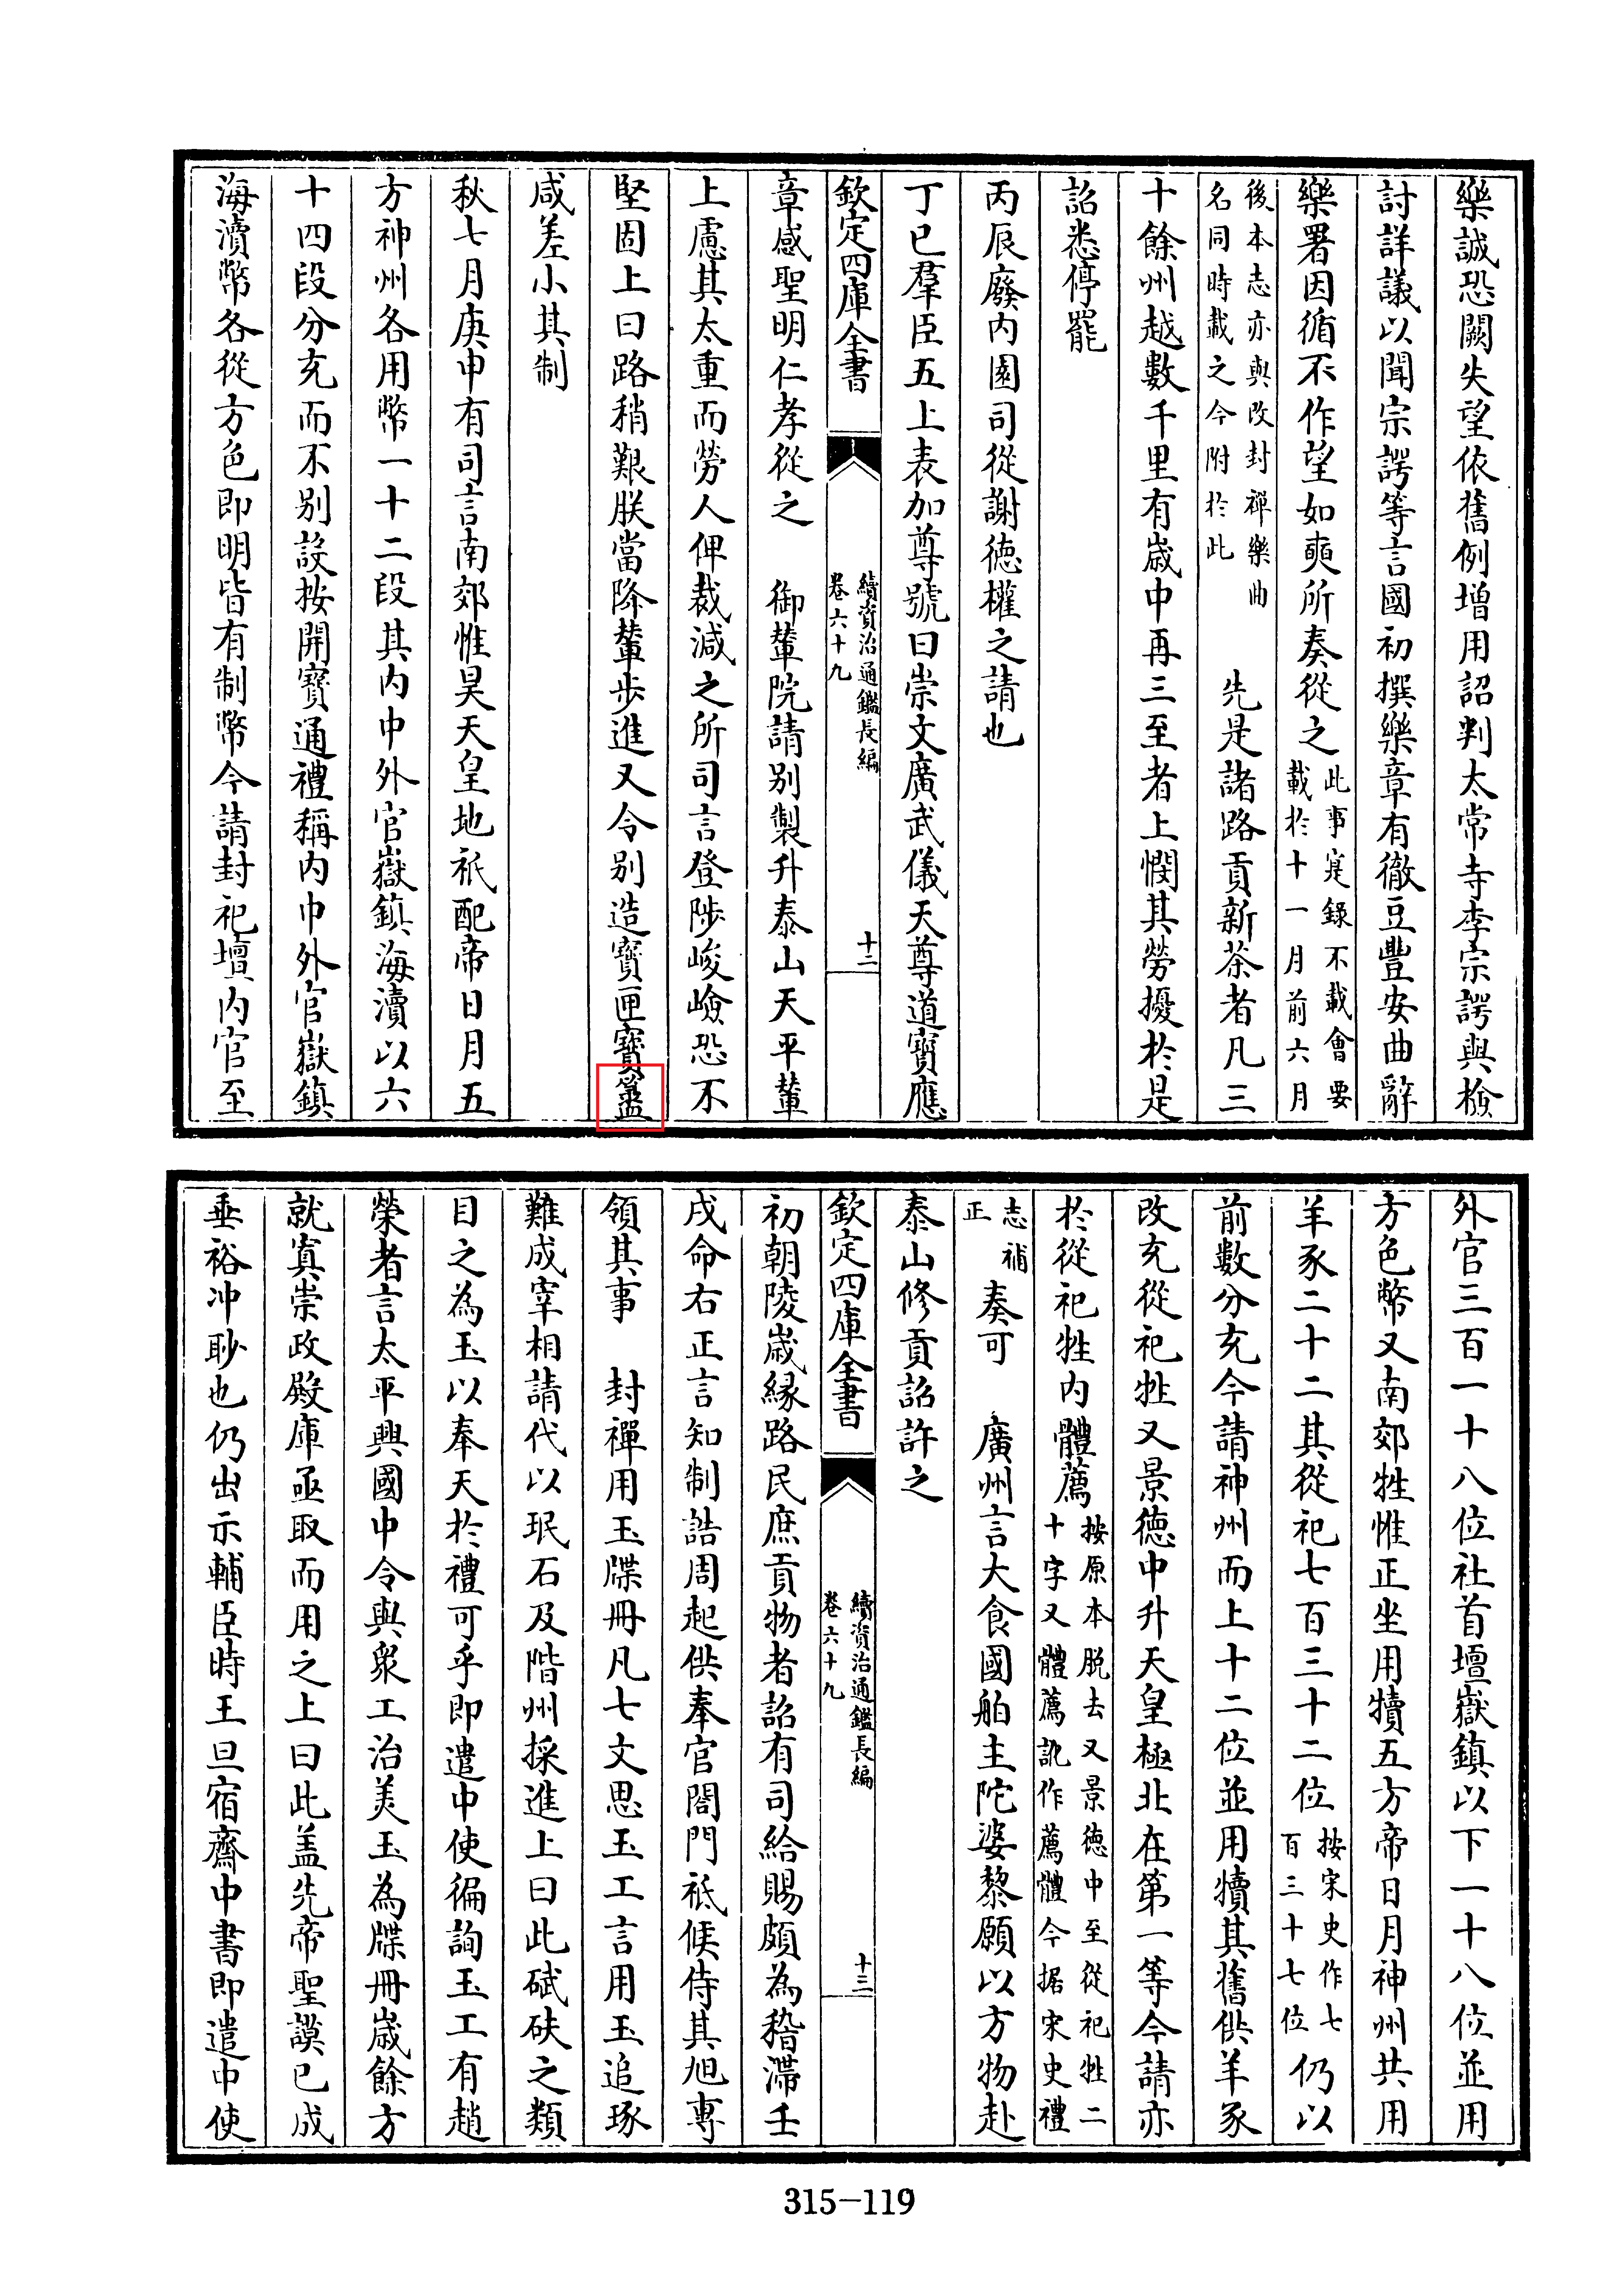 樂誠恐闕失望依舊例增用詔判太常寺李宗諤與檢
討詳議以聞宗諤等言國初撰樂章有徹豆豐安曲辭
樂署因循不作望如奭所奏從之此事寔録不載會要
載於十一月前六月
後本志亦與改封禪樂曲
名同時載之今附於此先是諸路貢新茶者凡三
十餘州越數千里有歳中再三至者上憫其勞擾於是
詔悉停罷
丙辰廢内園司從謝徳權之請也
丁巳羣臣五上表加尊號曰崇文廣武儀天尊道寳應
欽定四庫全書
續資治通鑑長編
卷六十九
十二
章感聖明仁孝從之 御輦院請别製升泰山天平輦
上慮其太重而勞人俾裁減之所司言登陟峻嶮恐不
堅固上曰路稍艱朕當降輦步進又令别造寳匣寳盝
咸差小其制
秋七月庚申有司言南郊惟昊天皇地祇配帝日月五
方神州各用幣一十二段其内中外官嶽鎮海瀆以六
十四段分充而不别設按開寳通禮稱内中外官嶽鎮
海瀆幣各從方色即明皆有制幣今請封祀壇内官至
外官三百一十八位社首壇嶽鎮以下一十八位並用
方色幣又南郊牲惟正坐用犢五方帝日月神州共用
羊豕二十二其從祀七百三十二位按宋史作七
百三十七位仍以
前數分充今請神州而上十二位並用犢其舊供羊豕
改充從祀牲又景徳中升天皇極北在第一等今請亦
於從祀牲内體薦按原本脱去又景徳中至從祀牲二
十字又體薦訛作薦體今据宋史禮
志補
正 奏可 廣州言大食國舶主陀婆黎願以方物赴
泰山修貢詔許之
欽定四庫全書
續資治通鑑長編
卷六十九
十三
初朝陵歳緣路民庶貢物者詔有司給賜頗為稽滯壬
戌命右正言知制誥周起供奉官閤門祗候侍其旭專
領其事 封禪用玉牒冊凡七文思玉工言用玉追琢
難成宰相請代以珉石及階州採進上曰此碔砆之類
目之為玉以奉天於禮可乎即遣中使徧詢玉工有趙
榮者言太平興國中令與衆工治美玉為牒冊歳餘方
就寘崇政殿庫亟取而用之上曰此盖先帝聖謨已成
垂裕冲眇也仍出示輔臣時王旦宿齋中書即遣中使
315-119